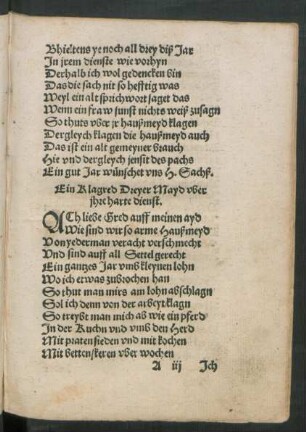 Bhieltens yr noch all drey diß Jar
In jrem dienste wie vorhyn
Derhalb ich wol gedencken bin
Das die sach nit so hefftig was
Weyl ein alt sprichwort saget das
Wenn ein fraw sunst nichts weiß zusagn
So thuts vber jr haußmeyd klagen
Dergleych klagen die haußmeyd auch
Das ist ein alt gemeyner brauch
Hie vnd dergleych jensit des pachs
Ein gut Jar wünschet vns H. Sachß.
Ein Klagred Dreyer Mayd vber
jhr harte dienst.
ACh liebe Gred auff meinen ayd
Wie sind wir so arme Haußmeyd
Von yederman veracht verschmecht
Vnd sind auff all Settel gerecht
Ein gantzes Jar vmb kleynen lohn
Wo ich etwas zubrochen han
So thut man mirs am lohn abschlagn
Sol ich denn von der arbeyt klagn
So treybt man mich ab wie ein pferd
In der Kuchn vnd vmb den Herd
Mit praten sieden vnd mit kochen
Mit bettenskeren vber wochen
A iij Ich